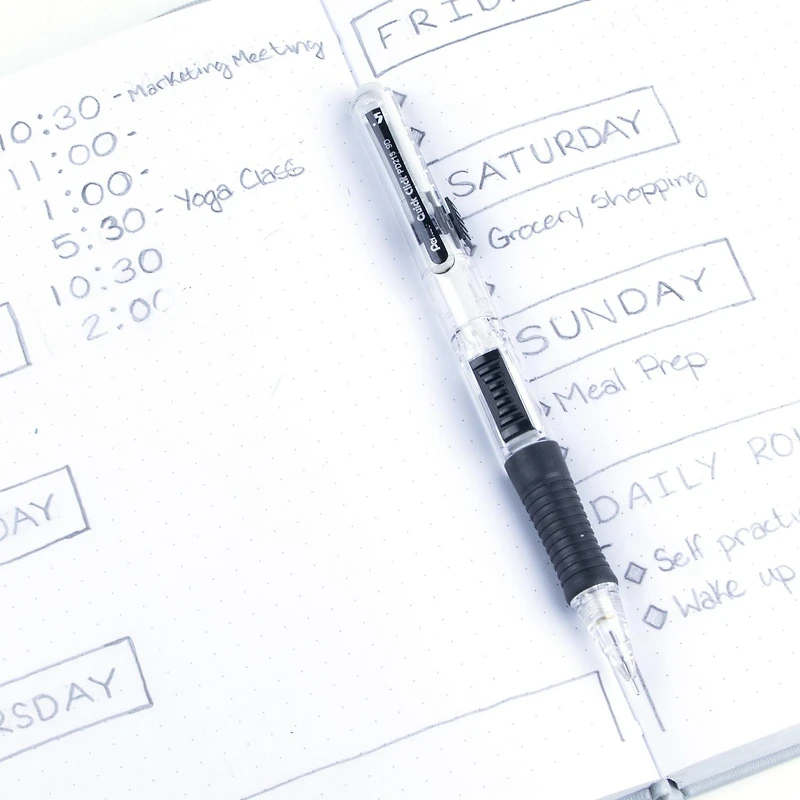 10:30 - Marketing Meeting
11:00 -
1:00 -
5:30 - Yoga Class
10:30
2:00
DAY
RSDAY
FRID
SATURDAY
Grocery Shopping
SUNDAY
Meal Prep
DAILY RO
Self practi
Wake up
Quick Click PD215 .5